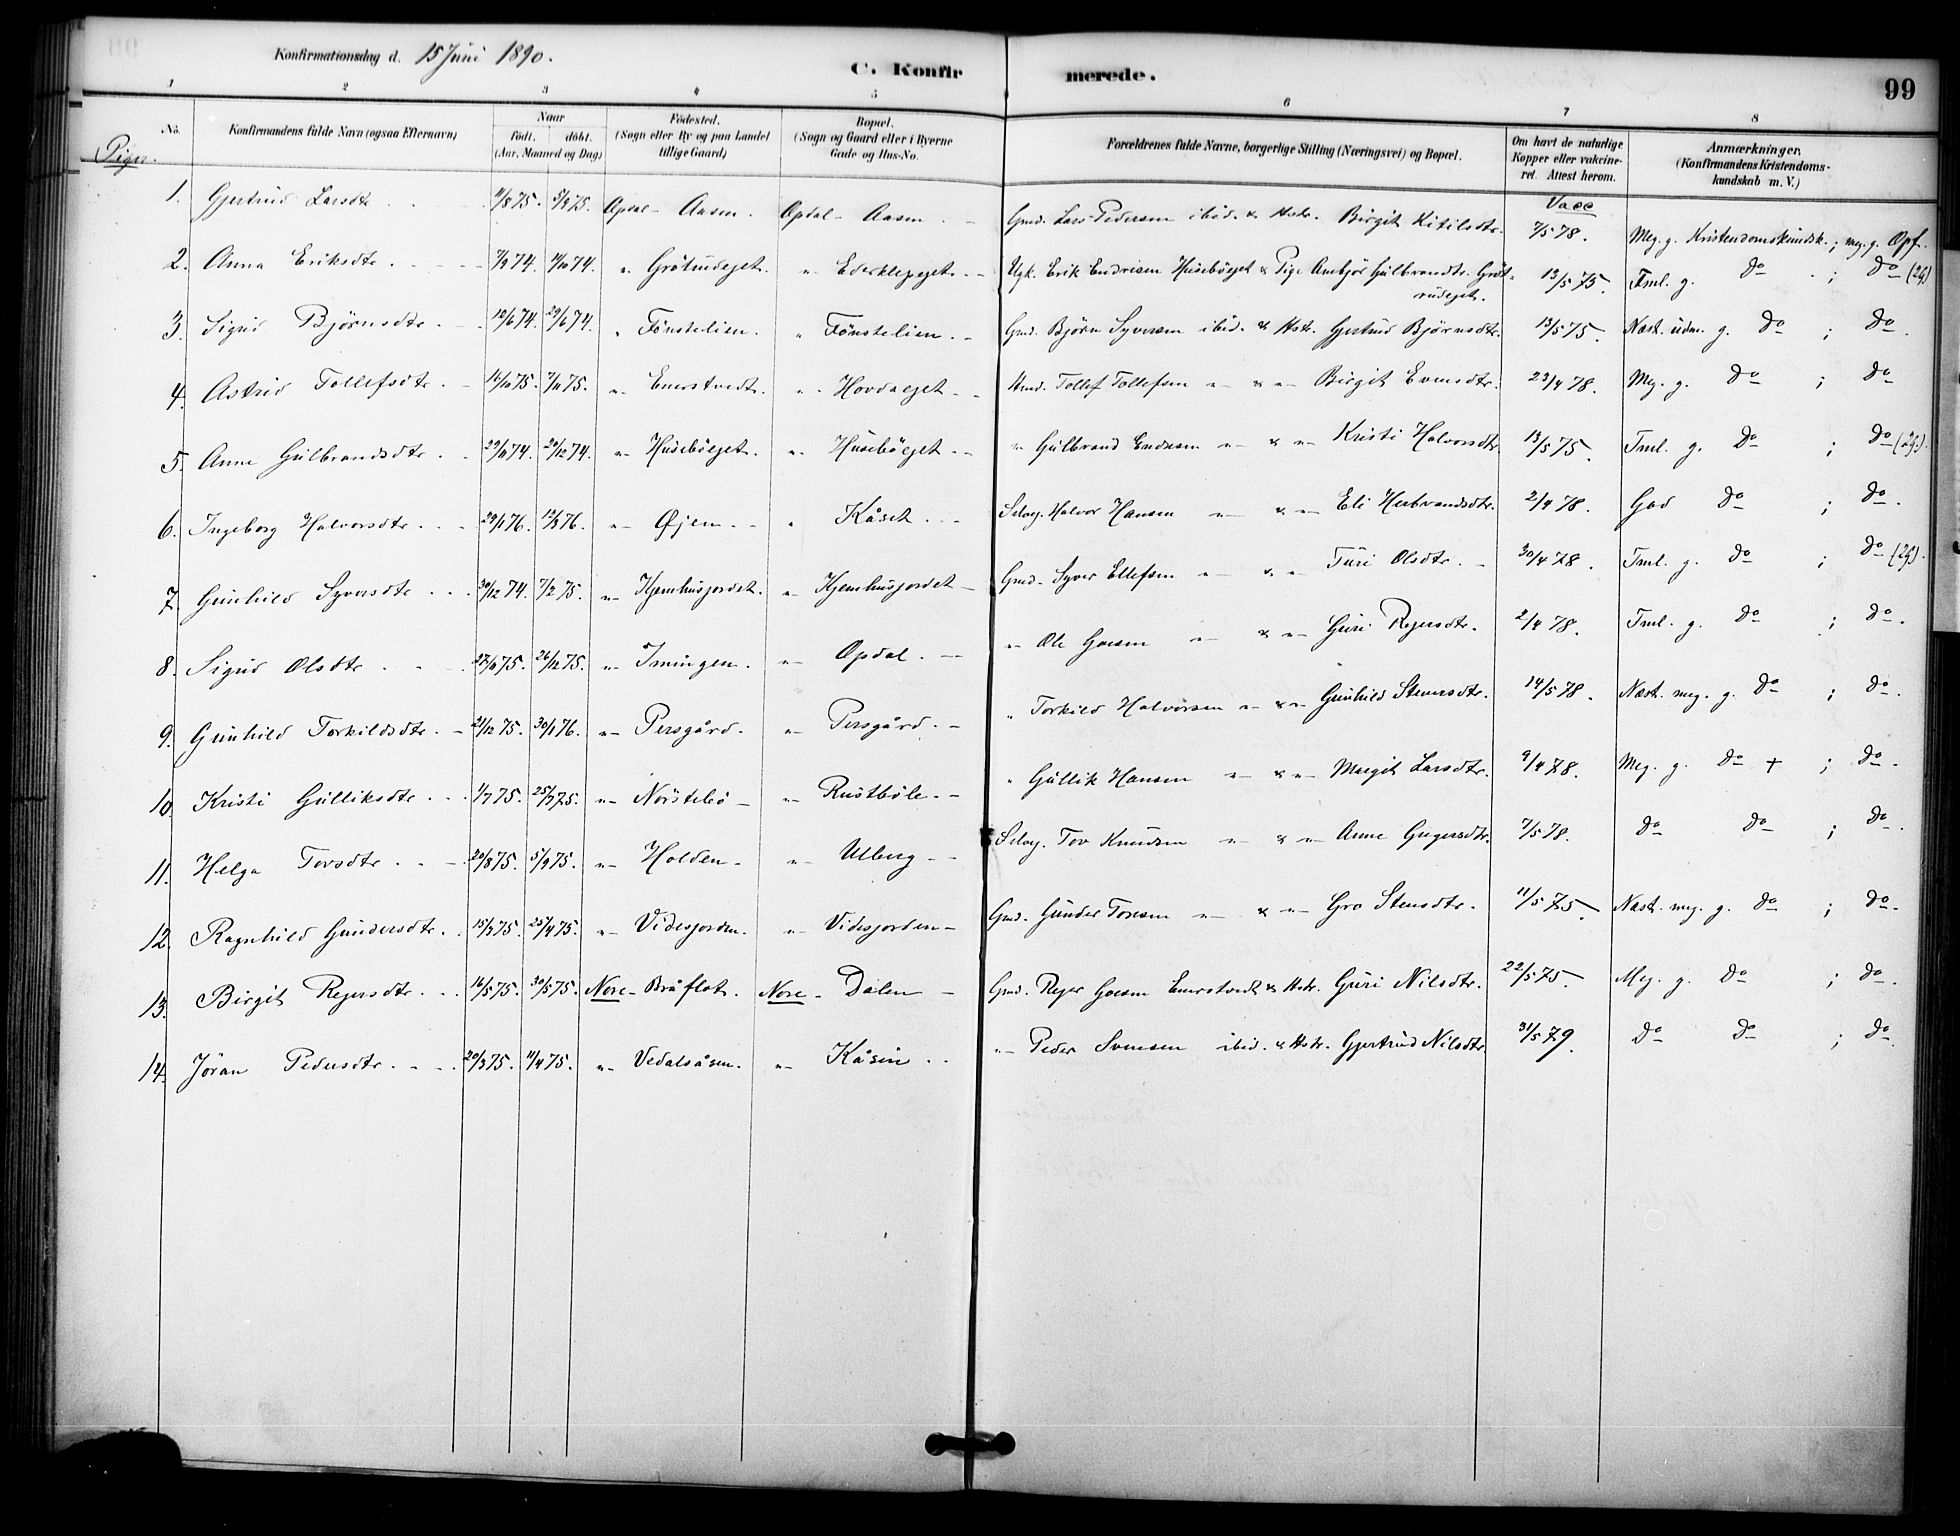 Konfirmationsdag d. 15 Juni 1890.
C. Konfir merede.
99
1 2 3 4 5 6 7 8
No. Konfirmandens fulde Navn (ogsaa Efternavn) Naar født. døbt. (Aar, Maaned og Dag) Fødested. (Sogn eller By og paa Landet tillige Gaard) Bopæl. (Sogn og Gaard eller i Byerne Gade og Hus-No. Forældrenes fulde Navne, borgerlige Stilling (Næringsvei) og Bopæl. Om havt de naturlige Kopper eller vakcineret. Attest herom. Anmærkninger. (Konfirmandens Kristendomskundskab m. V.)
Piger.
Vacc
1. Gjertrud Larsdtr 11/8 75. 5/9 75. Opdal - Aasen. Opdal - Aasen. Gmd. Lars Pedersen ibid. & Hstr. Birgit Kitilsdtr. 7/5 78. Meg. g. Kristendomskundsk.; meg. g. Opf.
2. Anna Eriksdtr. 74. 74. „ Grøtrudejet. „ Ederklepejet. Ugk. Erik Endresen Husebøejet & Pige Ambjør Gulbrandsdtr. Grøt-
rudejet. 13/5 75. Tml. g. do ; do (2g)
3. Sigrid Bjørnsdtr. 10/6 74. 29/6 74. „ Fønstelien. „ Fønstelien. Gmd. Bjørn Syversen ibid. & Hstr. Gjertrud Bjørnsdtr. 13/5 75. Næst. udm. g. do ; do.
4. Astrid Tollefsdtr. 75. 75. „ Enerstvedt. „ Hovdeejet. Gmd. Tollef Tollefsen „ & „ Birgit Evensdtr. 23/4 78. Meg. g. do ; do
5. Anne Gulbrandsdtr. 74. 20/12 74. „ Husebøejet. „ Husebøejet. „ Gulbrand Endresen „ & „ Kristi Halvorsdtr. 13/5 75. Tml. g. do ; do (2g).
6. Ingeborg Halvorsdtr. 29/1 76. 12/3 76. „ Øjen. „ Kåset. Selvej. Halvor Hansen „ & „ Eli Herbrandsdtr. 2/4 78. God do ; do.
7. Gunhild Syversdtr. 30/12 74. 7/2 75. „ Kjemhusjordet. „ Kjemhusjordet Gmd. Syver Ellefsen „ & „ Turi Olsdtr. 30/4 78. Tml. g. do ; do (2g).
8. Sigrid Olsdtr. 27/10 75. 26/12 75. „ Imingen. „ Opdal. „ Ole Goesen „ & „ Guri Rejersdtr. 2/4 78. Tml. g. do ; do.
9. Gunhild Torkildsdtr. 21/12 75. 30/1 76. „ Persgård. „ Persgård. „ Torkild Halvorsen „ & „ Gunhild Steversdtr. 14/5 78. Næst. meg. g. do ; do.
10. Kristi Gulliksdtr. 1/7 75. 25/7 75. „ Nørstebø „ Rustbøle. „ Gullik Hansen „ & „ Margit Larsdtr. 9/4 78. Meg. g. do + ; do.
11. Helga Tovsdtr. 20/8 75. 5/9 75. „ Holden. „ Ulberg Selvej. Tov Knudsen „ & „ Anne Gregersdtr. 7/5 78. do do ; do.
12. Ragnhild Gundersdtr. 15/3 75. 25/4 75. „ Videsjorden. „ Videsjorden Gmd. Gunder Toresen „ & „ Gro Stensdtr. 11/5 75. Næst. meg. g. do ; do.
13. Birgit Rejersdtr. 16/5 75. 30/5 75. Nore - Bråflot. Nore - Dalen Gmd. Rejer Goesen Enerstvedt & Hstr. Guri Nilsdtr. 22/5 75. Meg. g. do ; do.
14. Jøran Pedersdtr. 20/3 75. 11/4 75. „ Vedalsåsen. „ Kåsin „ Peder Svensen ibid. & Hstr. Gjertrud Nilsdtr. 31/5 79. do do ; do.